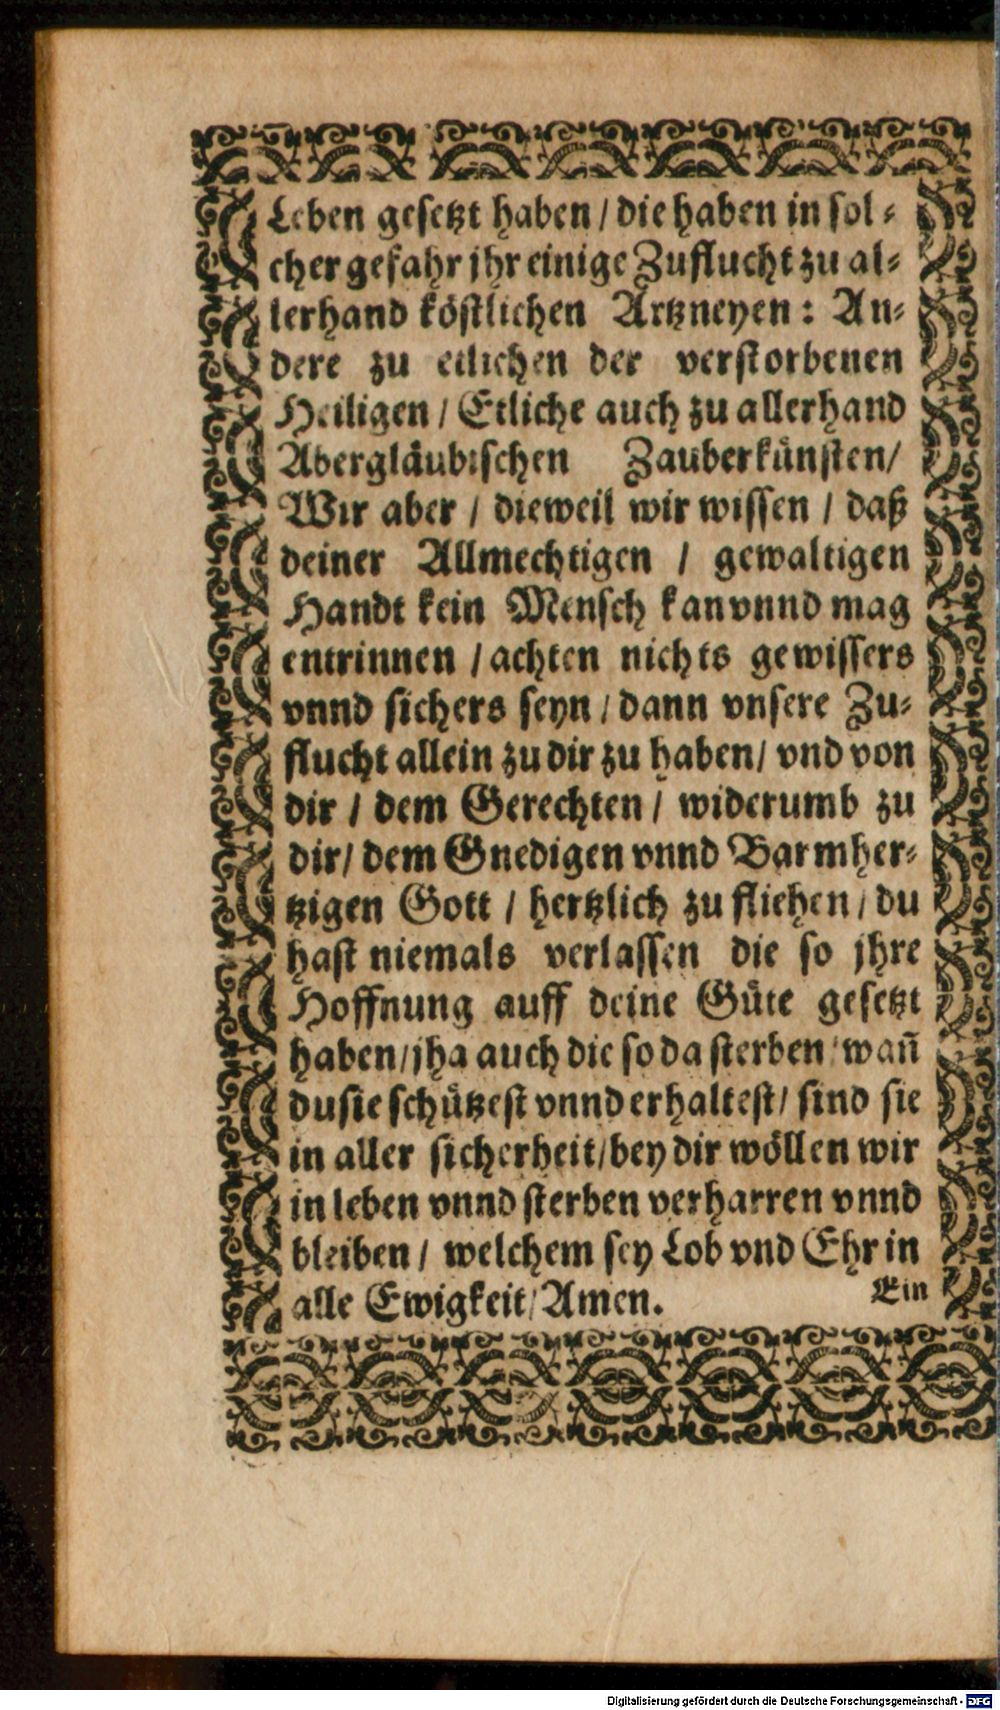 Leben gesetzt haben / die haben in sol-
cher gefahr jhr einige Zuflucht zu al-
lerhand köstlichen Artzneyen : An-
dere zu etlichen der verstorbenen
Heiligen / Etliche auch zu allerhand
Abergläubischen Zauberkünsten /
Wir aber / dieweil wir wissen / daß
deiner Allmechtigen / gewaltigen
Handt kein Mensch kan vnnd mag
entrinnen / achten nichts gewissers
vnnd sichers seyn / dann vnsere Zu-
flucht allein zu dir zu haben / vnd von
dir / dem Gerechten / widerumb zu
dir / dem Gnedigen vnnd Barmher-
tzigen Gott / hertzlich zu fliehen / du
hast niemals verlassen die so jhre
Hoffnung auff deine Güte gesetzt
haben / jha auch die so da sterben / wañ
du sie schützest vnnd erhaltest / sind sie
in aller sicherheit / bey dir wöllen wir
in leben vnnd sterben verharren vnnd
bleiben / welchem sey Lob vnd Ehr in
alle Ewigkeit / Amen.
Ein
Digitalisierung gefördert durch die Deutsche Forschungsgemeinschaft - DFG